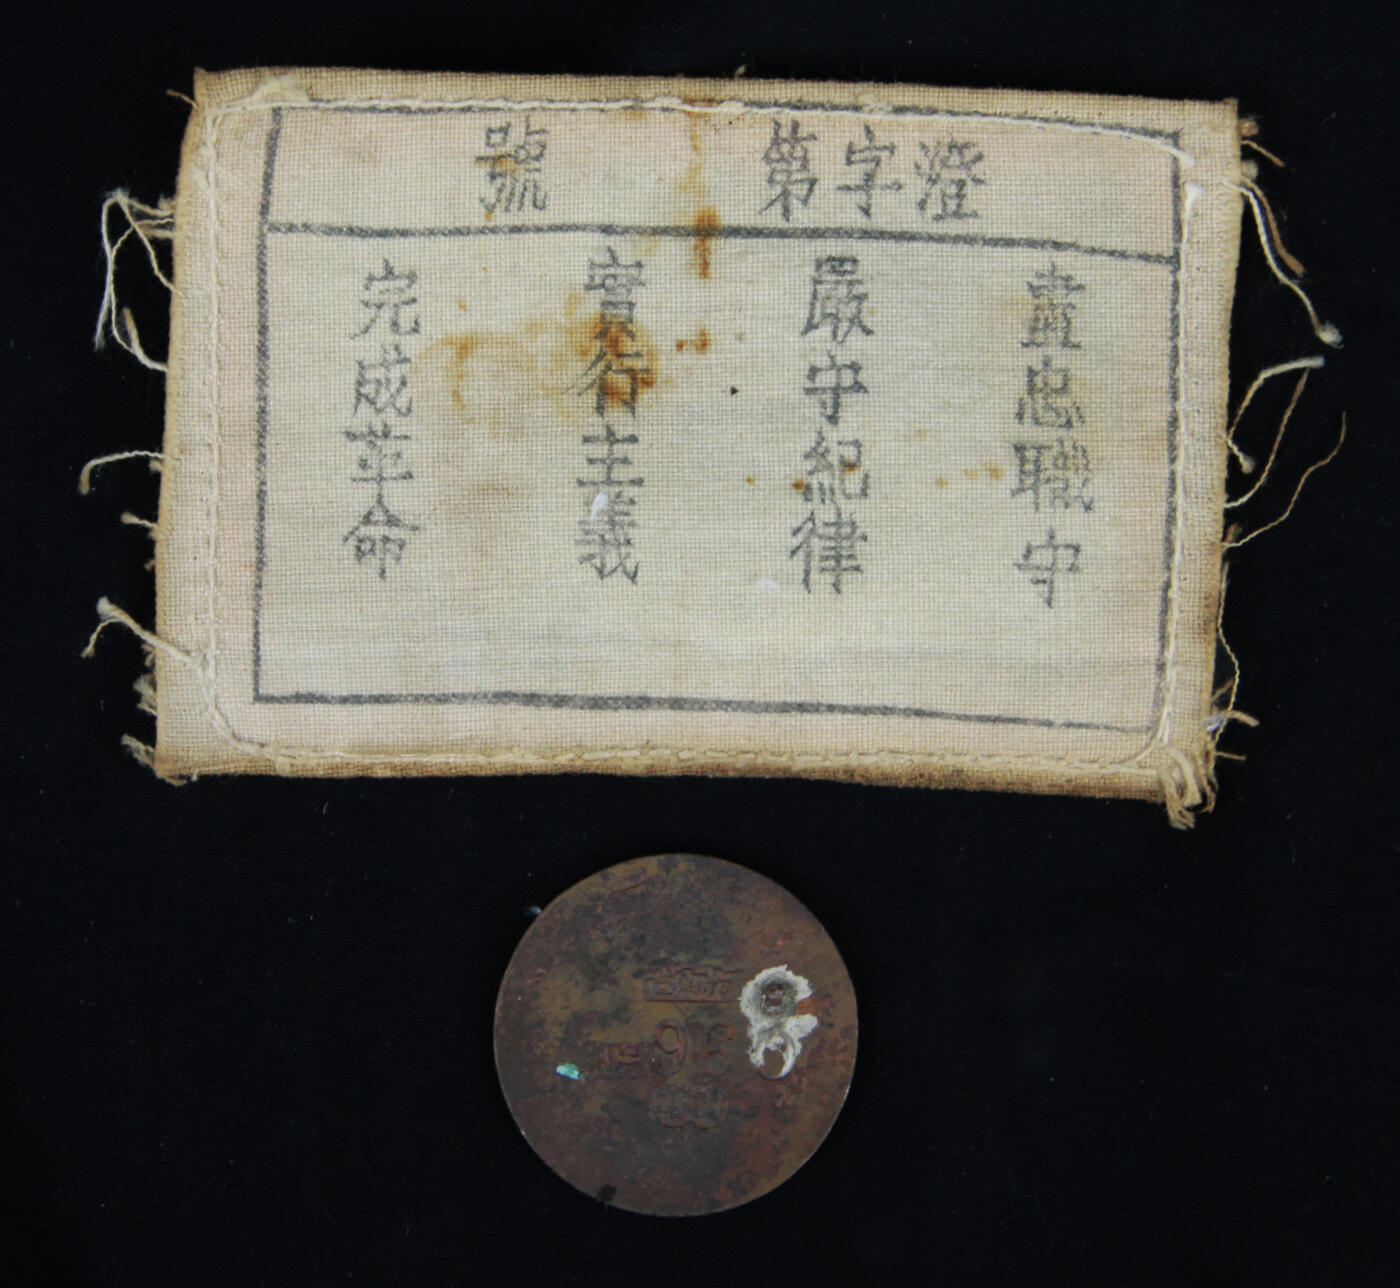 澄字第 號
盡忠職守
嚴守紀律
實行主義
完成革命